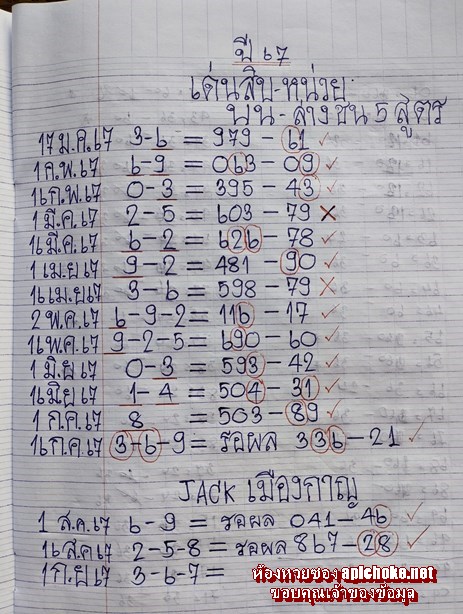 ปี ๖๗
เด่นสิบ-หน่วย
บน - ล่าง ชน 5 สูตร
17 ม.ค.67 3-6 = 979 - 61 ✓
1 ก.พ.67 6-9 = 063 - 09 ✓
16 ก.พ.67 0-3 = 395 - 43 ✓
1 มี.ค.67 2-5 = 603 - 79 ×
16 มี.ค.67 6-2 = 626 - 78 ✓
1 เม.ย 67 9-2 = 481 - 90 ✓
16 เม.ย 67 3-6 = 598 - 79 ×
2 พ.ค.67 6-9-2 = 116 - 17 ✓
16 พ.ค.67 9-2-5 = 690 - 60 ✓
1 มิ.ย 67 0-3 = 593 - 42 ✓
16 มิย 67 1-4 = 504 - 31 ✓
1 ก.ค.67 8 = 503 - 89 ✓
16 ก.ค.67 3-6-9 = รอผล 336 - 21 ✓
JACK เมืองกาญ
1 ส.ค.67 6-9 = รอผล 041 - 46 ✓
16 ส.ค 67 2-5-8 = รอผล 867 - 28 ✓
1 ก.ย 67 3-6-7 =
ห้องหวยซอง aplchoke.net
ขอบคุณเจ้าของข้อมูล